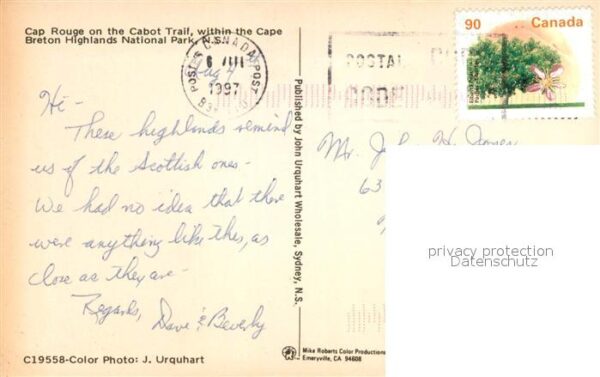 Cap Rouge on the Cabot Trail, within the Cape
Breton Highlands National Park, N.S.
CANADA
POSTES POST
1997
POSTAL
CODE
90 Canada
Aug 4
Hi -
These highlands remind
us of the Scottish ones -
We had no idea that there
were anything like this, as
close as they are -
Regards,
Dave & Beverly
Published by John Urquhart Wholesale, Sydney, N.S.
Mr. John H.
63
privacy protection
Datenschutz
C19558-Color Photo: J. Urquhart
Mike Roberts Color Productions
Emeryville, CA 94608